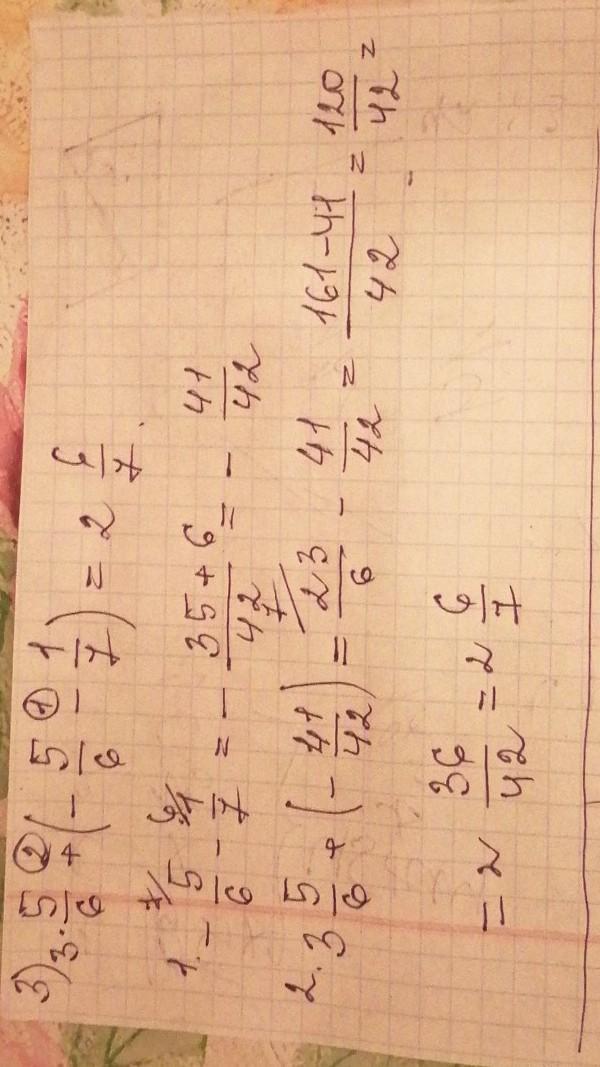 3) 3 · 5/6 ② + (− 5/6 ① − 1/7) = 2 6/7.
1. − 5/6 ⁷⁄ − 1/7 ⁶⁄ = − 35 + 6/42 = − 41/42
2. 3 5/6 + (− 41/42) = 23/6 ⁷⁄ − 41/42 = 161 − 41/42 = 120/42 =
= 2 36/42 = 2 6/7